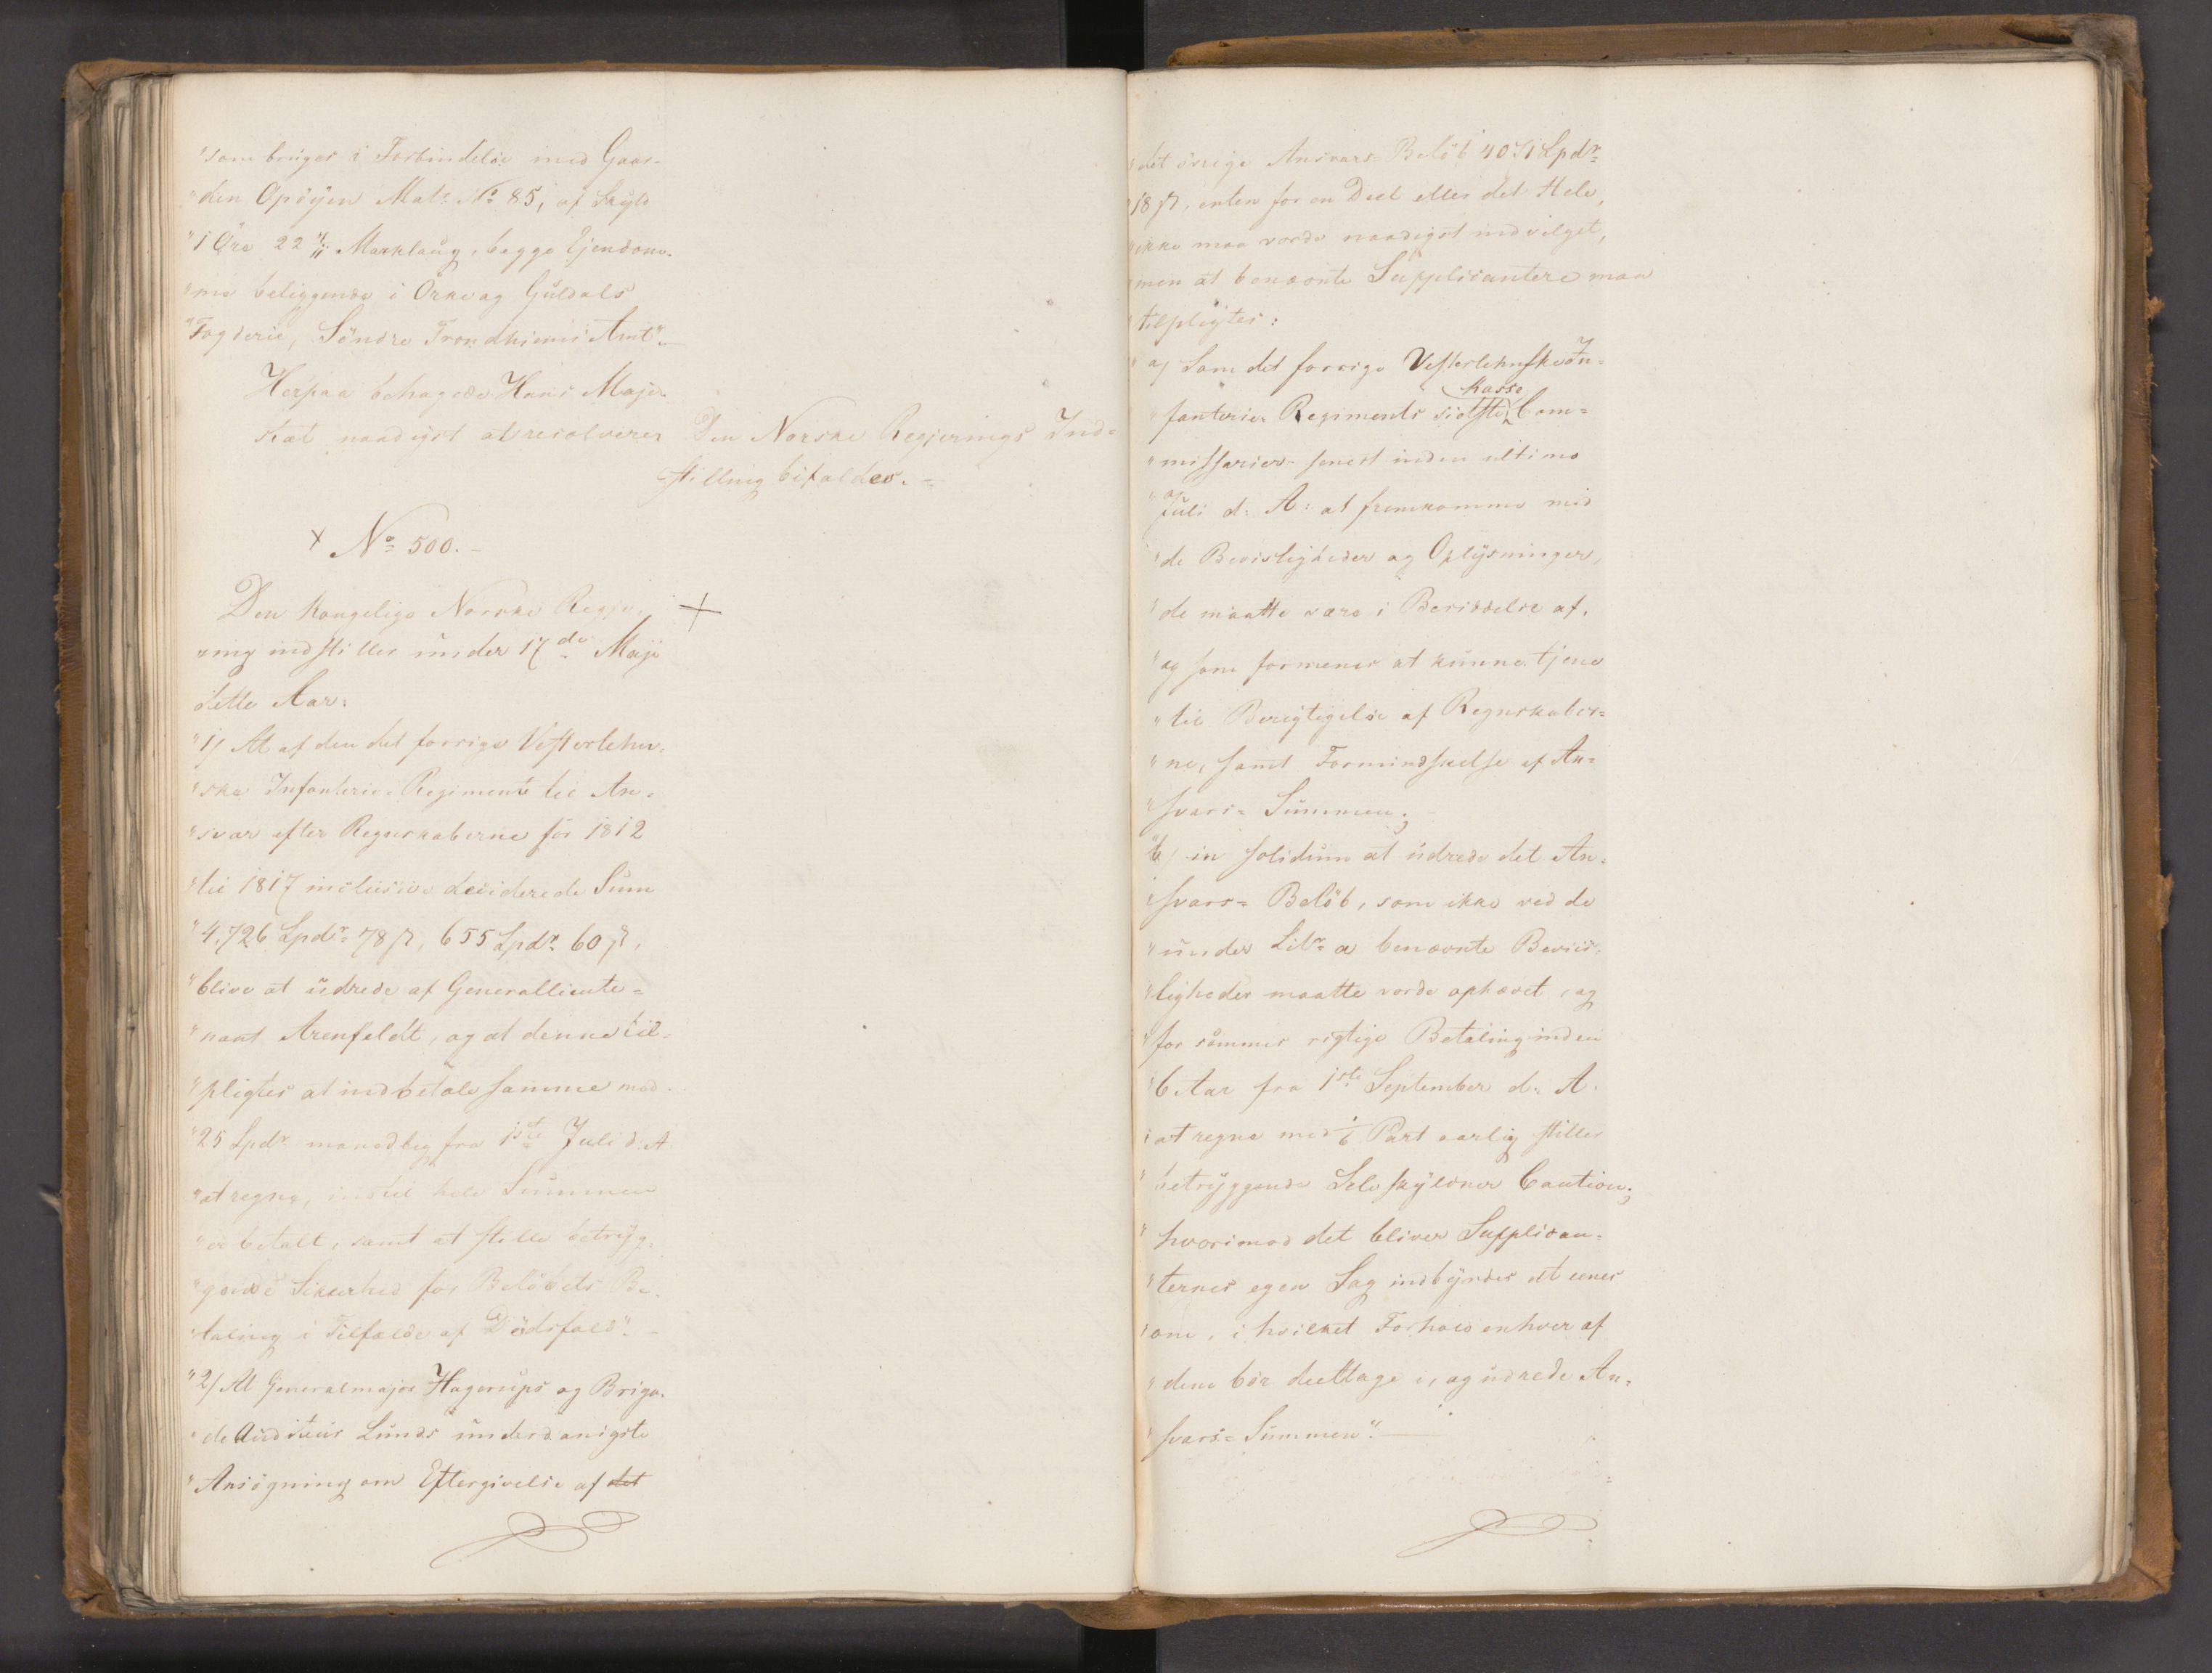 "som bruges i Forbindelse med Gaar-
"den Opöyen Matr: No 85, af Skyld
"1 Öre 22 Marklaug, begge Ejendom-
"me beliggende i Orke og Guldals
"Fogderie, Söndre Trondhiems Amt".
Herpaa behagede Hans Maje-
stæt naadigst at resolvere:
Den Norske Regjerings Ind-
stilling bifaldes.-
+ No 500.-
Den Kongelige Norske Regje-
ring indstiller under 17de Maji
dette Aar:
"1/ At af den det forrige Vesterlehn-
"ske Infanterie-Regiment til An-
"svar efter Regnskaberne for 1812
"til 1817 inclusive deciderede Sum
"4,726 Spdr 78 ß, 655 Spdr 60 ß,
"blive at udrede af Generallieute-
"nant Arenfeldt, og at denne til-
"pligtes at indbetale samme med
"25 Spdr maanedlig fra 1ste Juli d. A
"at regne, indtil hele Summen
"er betalt, samt at stille betryg-
"gende Sikkerhed for Belöbets Be-
"taling i Tilfælde af Dödsfald".-
"2/ At Generalmajor Hagerups og Briga-
"de Auditeur Lunds underdanigste
"Ansögning om Eftergivelse af det
"det övrige Ansvars-Belöb 4071 Spdr
"18 ß, enten for en Deel eller det Hele,
"ikke maa vorde naadigst indvilget,
"men at benævnte Supplicantere maa
"tilpligtes:
"a/ Som det forrige Vesterlehnske In-
"fanterie Regiments sidste Kasse Com-
"missarier senest inden ultimo
"Juli d: A: at fremkomme med
"de Beviisligheder og Oplysninger,
"de maatte være i Besiddelse af,
"og som formenes at kunne tjene
"til Berigtigelse af Regnskaber-
"ne, samt Formindskelse af An-
"svars-Summen;
"b/ in solidum at udrede det An-
"svars-Belöb, som ikke ved de
"under Litr a benævnte Beviis-
"ligheder maatte vorde ophævet, og
"for sammes rigtige Betaling inden
"6 Aar fra 1ste September d: A.
"at regne med 1/6 Part aarlig stille
"betryggende Selvskyldner Caution;
"hvorimod det bliver Supplican-
"ternes egen Sag indbyrdes at enes
"om, i hvilket Forhold enhver af
"dem bör deeltage i, og udrede An-
"svars-Summen".